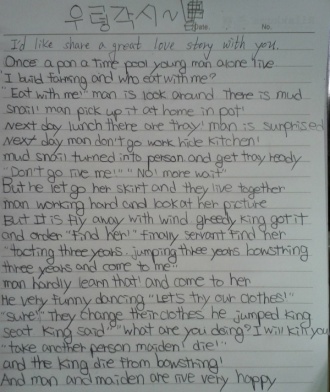 우렁각시~
Date. No.
I'd like share a great love story with you.
Once a pon a time pool young man alone live
I build farming and who eat with me?
"Eat with me!" man is look around There is mud
snail! man pick up it at home in pot
Next day lunch there are tray! man is surprised
Next day man don't go work hide kitchen!
mud snail turned into person and get tray ready
"Don't go live me!" "No! more wait"
But he let go her skirt and they live together
man working hard and look at her picture
But It is fly away with wind greedy king got it
and order "Find her!" finally servant find her
"tacting three years, jumping three years bowstring
three years and come to me"
man hardly learn that! and come to her
He very funny dancing "Let's thy our clothes!"
"sure!" They change their clothes he jumped king
seat king said "what are you doing? I will kill you
"take another person maiden! die!"
and the king die from bowstring!
And man and maiden are live very happy